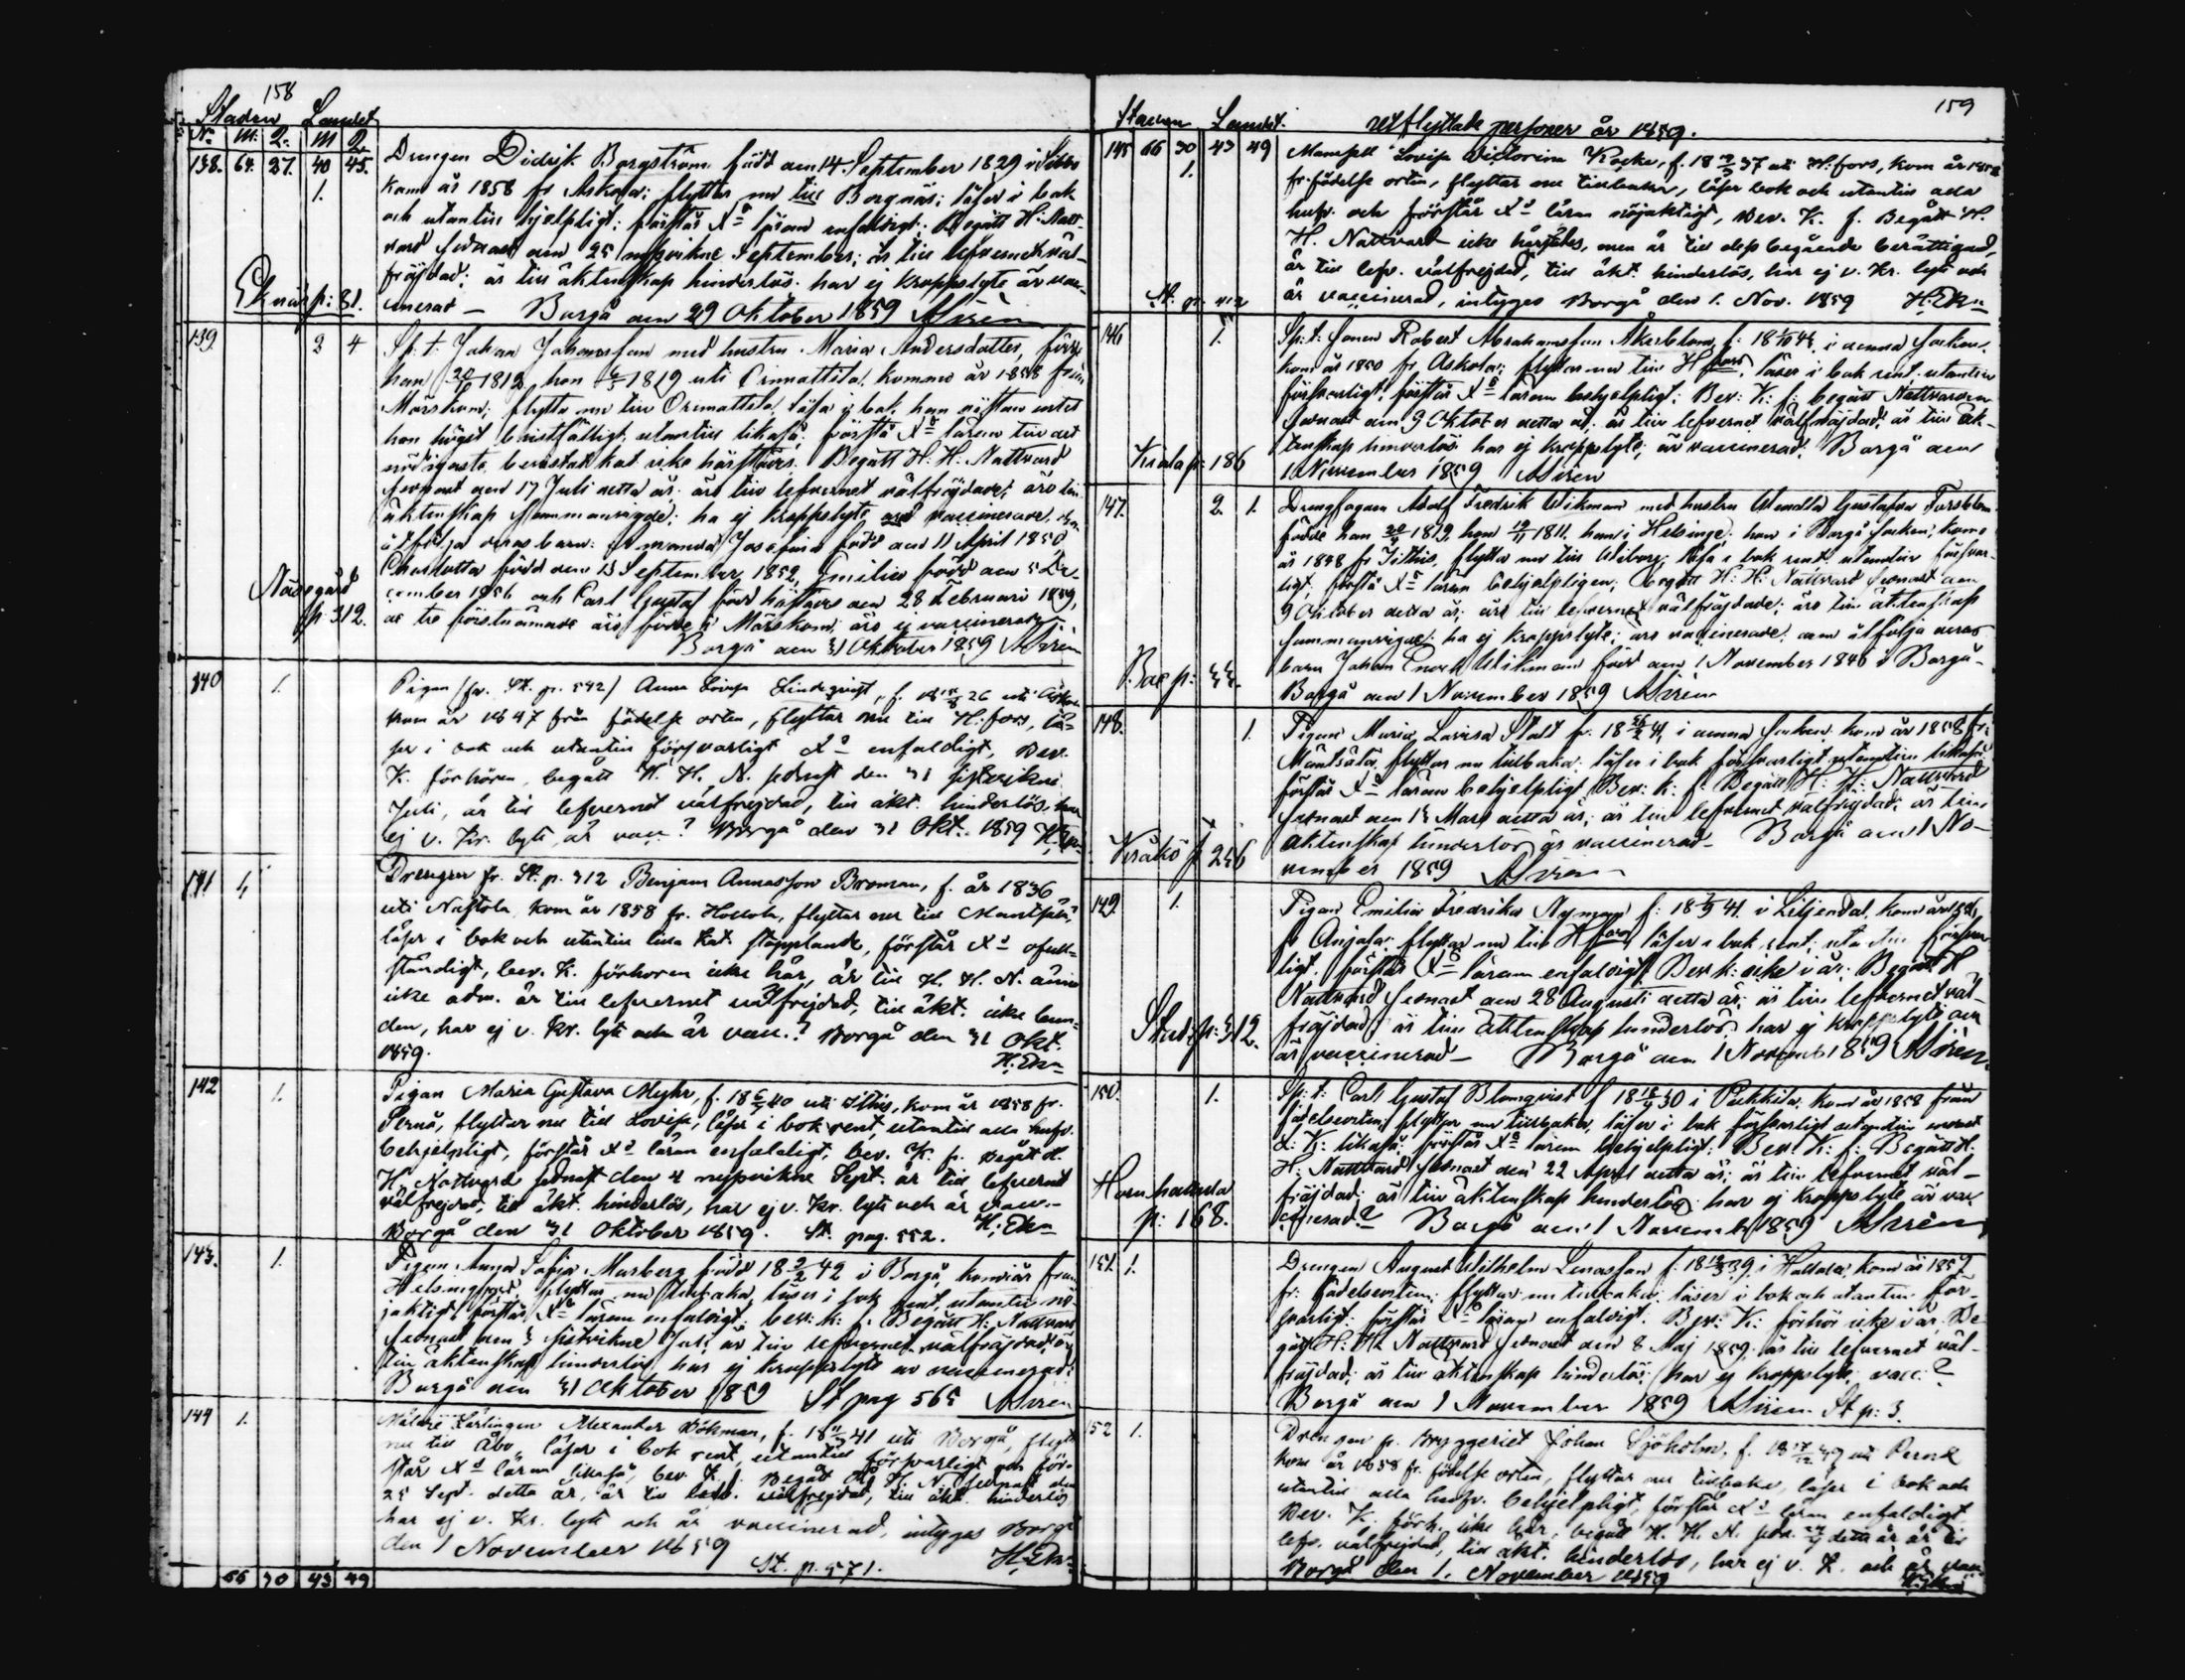 158
Staden Landet
No m: Q. m Q
138. 64. 27. 40 45. Drengen Didrik Borgström född den 14 September 1829 i Sibbo
1. kom år 1858 fr Askola; flyttar nu till Borgnäs; läser i bok
och utantill hjelpligt; förstår Xs läran enfaldigt; Begått H: Natt-
vard sednast den 25 nysvikne September; är till lefvernet väl-
fräjdad; är till äktenskap hinderlös; har ej kroppslyte är vac-
Eknäs p: 81. cinerad — Borgå den 29 Oktober 1859 Mirén
139 3 4 Sp: t: Johan Johansson med hustru Maria Andersdotter, födde
han 1812, hon 1819 uti Orimattila, kommo år 1858 från
Mörskom; flytta nu till Orimattila, läsa i bok, han
hon högst bristfälligt, utantill likaså; förstå Xs läran till det
nödigaste, icke härstädes. Begått H: H: Nattvard
sednast den 17 Juli detta år; äro till lefvernet välfräjdade; äro till
äktenskap sammanvigde; ha ej kroppslyte, äro vaccinerade,
åtfölja deras barn: Amanda Josefina född den 11 April 1850
Charlotta född den 13 September 1852, Emilia född den 5 De-
Näsegård cember 1856 och Carl Gustaf född härstädes den 28 Februari 1859,
p: 312. de tre förstnämnde äro födde i Mörskom; äro ej vaccinerade.
Borgå den 31 Oktober 1859 Mirén
140 1. Pigan (fr. St. p. 542) Anna Lovisa Lindqvist, f. 26 uti
kom år 1847 från födelse orten, flyttar nu till H:fors, lä-
ser i bok och utantill försvarligt Xs enfaldigt, bev.
K. förhören, begått H. H. N. sednast den 31 sistvikne
Juli, är till lefvernet välfrejdad, till äkt. hinderlös, har
ej v. Kr. lyte, är vacc? Borgå den 31 Okt. 1859
141 1. Drengen fr. St. p. 312 Benjam Annasson Broman, f. år 1836
uti Nastola, kom år 1858 fr. Hollola, flyttar nu till Mäntsälä,
läser i bok och utantill lilla Kat. stapplande, förstår Xs ofull-
ständigt, bev. K. förhören icke här, är till H. H. N. ännu
icke adm. är till lefvernet välfrejdad, till äkt. icke bun-
den, har ej v. Kr. lyte och är vacc.? Borgå den 31 Okt.
1859.
142 1. Pigan Maria Gustava Meyhr, f. 40 uti Iittis, kom år 1858 fr.
Pernå, flyttar nu till Lovisa, läser i bok rent, utantill alla hufv.
behjelpligt, förstår Xs läran enfaldigt, bev. K. f. Begått H.
H. Nattvard sednast den 4 nysvikne Sept. är till lefvernet
välfrejdad, till äkt. hinderlös, har ej v. Kr. lyte och är vacc.-
Borgå den 31 Oktober 1859. St. pag. 552.
143. 1. Pigan Anna Sofia Marberg född 18 9/2 42 i Borgå, kom i år från
Helsingfors, flyttar nu tillbaka, läser i bok rent, utantill nö-
jaktigt, förstår Xs läran enfaldigt; bev: K: f: Begått H: Nattvard
sednast den 3 sistvikne Juli, är till lefvernet välfräjdad, är
till äktenskap hinderlös, har ej kroppslyte är vaccinerad:
Borgå den 31 Oktober 1859 St pag 565 Mirén
144 1. Målare Lärlingen Alexander Bökman, f. 41 uti Borgå, flyttar
nu till Åbo, läser i bok rent, utantill försvarligt och för-
står Xs läran likaså, bev. K. f. Begått H. H. N. sednast den
25 Sept. detta år, är till lefv. välfrejdad, till äkt. hinderlös
har ej v. Kr. lyte och är vaccinerad, intygas Borgå
den 1 November 1859
St. p. 571.
66 30 43 49
159
Staden Landet. utflyttade personer år 1859.
145 66 30 43 49 Mamsell Lovisa Victorina Kocke, f. 37 uti H:fors, kom år 1858
1. fr. födelse orten, flyttar nu tillbaka, läser bok och utantill alla
hufv. och förstår Xs läran nöjaktigt, bev. K. f. Begått H.
H. Nattvard icke härstädes, men är till dess begående berättigad,
är till lefv. välfrejdad, till äkt. hinderlös, har ej v. Kr. lyte och
är vaccinerad, intygas Borgå den 1. Nov. 1859
146 1. Sp: t: Sonen Robert Abrahamsson Åkerblom, f. i denna socken,
kom år 1850 fr. Askola; flyttar nu till Hfors, läser i bok rent, utantill
försvarligt; förstår Xs läran behjelpligt; Bev: K: f: begått Nattvarden
sednast den 9 Oktober detta år, är till lefvernet välfräjdad; är till äk-
tenskap hinderlös har ej kroppslyte, är vaccinerad. Borgå den
Kiala p: 186 1 November 1859 Mirén
147. 2. 1. Drengfogden Adolf Fredrik Wikman med hustru Gustafva Forsblom
födde han 1819, hon 1811, han i Helsinge, hon i Borgå socken; komo
år 1858 fr Iittis, flytta nu till Wiborg, läsa i bok rent, utantill försvar-
ligt; förstå Xs läran behjelpligen; begått H: H: Nattvard sednast den
9 Oktober detta år; äro till lefvernet välfräjdade; äro till äktenskap
sammanvigde; ha ej kroppslyte; äro vaccinerade; dem åtfölja deras
barn Johan Enoch Wikman född den 1 November 1846 i Borgå-
Borgå den 1 November 1859 Mirén
148. 1. Pigan Maria Lovisa Stolt f. i denna socken, kom år 1858 fr:
Mäntsälä, flyttar nu tillbaka; läser i bok försvarligt, utantill likaså
förstår Xs läran behjelpligt Bev: K: f: Begått H: H: Nattvard
sednast den 13 Mars detta år; är till lefvernet välfrejdad; är till
äktenskap hinderlös är vaccinerad — Borgå den 1 No-
256 vember 1859 Mirén
149. 1. Pigan Emilia Fredrika Nyman f: 41 i Liljendal, kom år
fr Anjala; flyttar nu till Hfors, läser i bok rent; utantill försvar-
ligt, förstår Xs läran enfaldigt Bev: k: icke i år; Begått H
Nattvard sednast den 28 Augusti detta år; är till lefvernet väl-
Stad: p: 312. fräjdad; är till äktenskap hinderlös; har ej kroppslyte
är vaccinerad — Borgå den 1 Novemb 1859 Mirén
150. 1. Sp: t: Carl Gustaf Blomqvist f 30 i Pukkila, kom år 1858 från
födelseorten, flyttar nu tillbaka, läser i bok försvarligt utantill
L: K: likaså; förstår Xs läran behjelpligt: Bev: K: f: Begått H:
H: Nattvard sednast den 22 April detta år; är till lefvernet väl-
Hornhattula fräjdad; är till äktenskap hinderlös; har ej kroppslyte är vac-
p: 168. cinerad? Borgå den 1 Novemb 1859 Mirén
151. 1. Drengen August Wilhelm Lenasson f: 39, i Hollola, kom år 1857
fr: födelseorten; flyttar nu tillbaka; läser i bok och utantill för-
svarligt; förstår Xs läran enfaldigt. Bev: K: förhör icke i år. Be-
gått H: H: Nattvard sednast den 8 Maj 1859; är till lefvernet väl-
fräjdad; är till äktenskap hinderlös; har ej kroppslyte; vacc:?
Borgå den 1 November 1859 Mirén St p: 3.
152 1. Drengen fr. Bryggeriet Johan Sjöholm, f. uti Perno
kom år 1858 fr. födelse orten, flyttar nu tillbaka, läser i bok och
utantill alla hufv. behjelpligt, förstår Xs läran enfaldigt
Bev. K. förh. icke här, begått H. H. N. detta år är till
lefv. välfrejdad, till äkt. hinderlös, har ej v. K. och är vacc.
Borgå den 1. November 1859